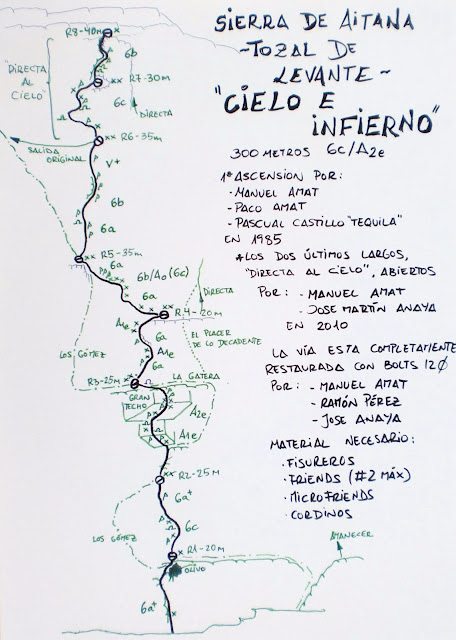 SIERRA DE AITANA
-TOZAL DE
LEVANTE-
"CIELO E
INFIERNO"
300 METROS 6c/A2e
1ª ASCENSION POR:
- MANUEL AMAT
- PACO AMAT
- PASCUAL CASTILLO "TEQUILA"
EN 1985
*LOS DOS ÚLTIMOS LARGOS,
"DIRECTA AL CIELO", ABIERTOS
POR: - MANUEL AMAT
- JOSE MARTÍN ANAYA
EN 2010
LA VÍA ESTA COMPLETAMENTE
RESTAURADA CON BOLTS 12Ø
POR: - MANUEL AMAT
- RAMÓN PÉREZ
- JOSE ANAYA
MATERIAL NECESARIO:
· FISUREROS
· FRIENDS (#2 MÁX)
· MICROFRIENDS
· CORDINOS
R8-40m
6b
"DIRECTA
AL
CIELO"
R7-30m
6c
DIRECTA
R6-35m
SALIDA
ORIGINAL
V+
6b
6a
R5-35m
6a
6b/A0 (6c)
6a
DIRECTA
R4-20m
A1e
6a
EL PLACER
DE LO DECADENTE
A1e
LOS GÓMEZ
6a
LA GATERA
R3-25m
GRAN
TECHO
A2e
A1e
R2-25m
6a+
LOS GÓMEZ
6c
AMANECER
R1-20m
OLIVO
6a+